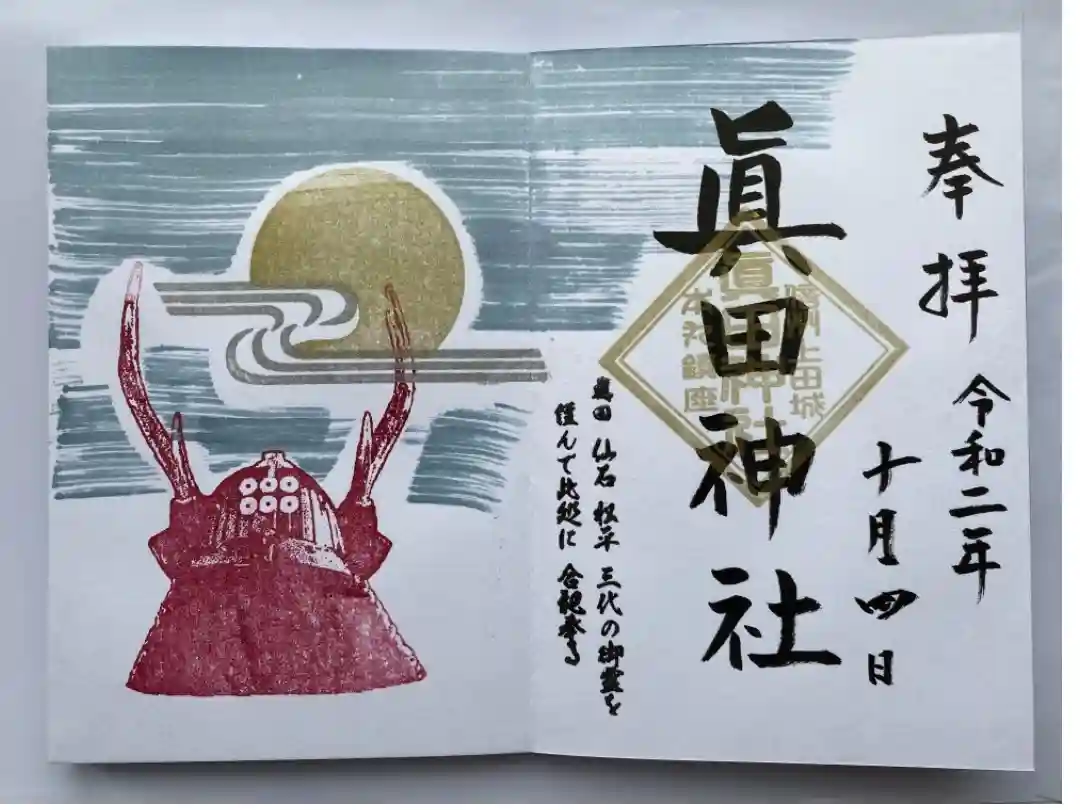 奉拝
令和二年
十月四日
眞田神社
信州上田城
眞田神社
本丸鎮座
真田 仙石 松平 三代の御霊を
謹んで此処に 合祀奉る